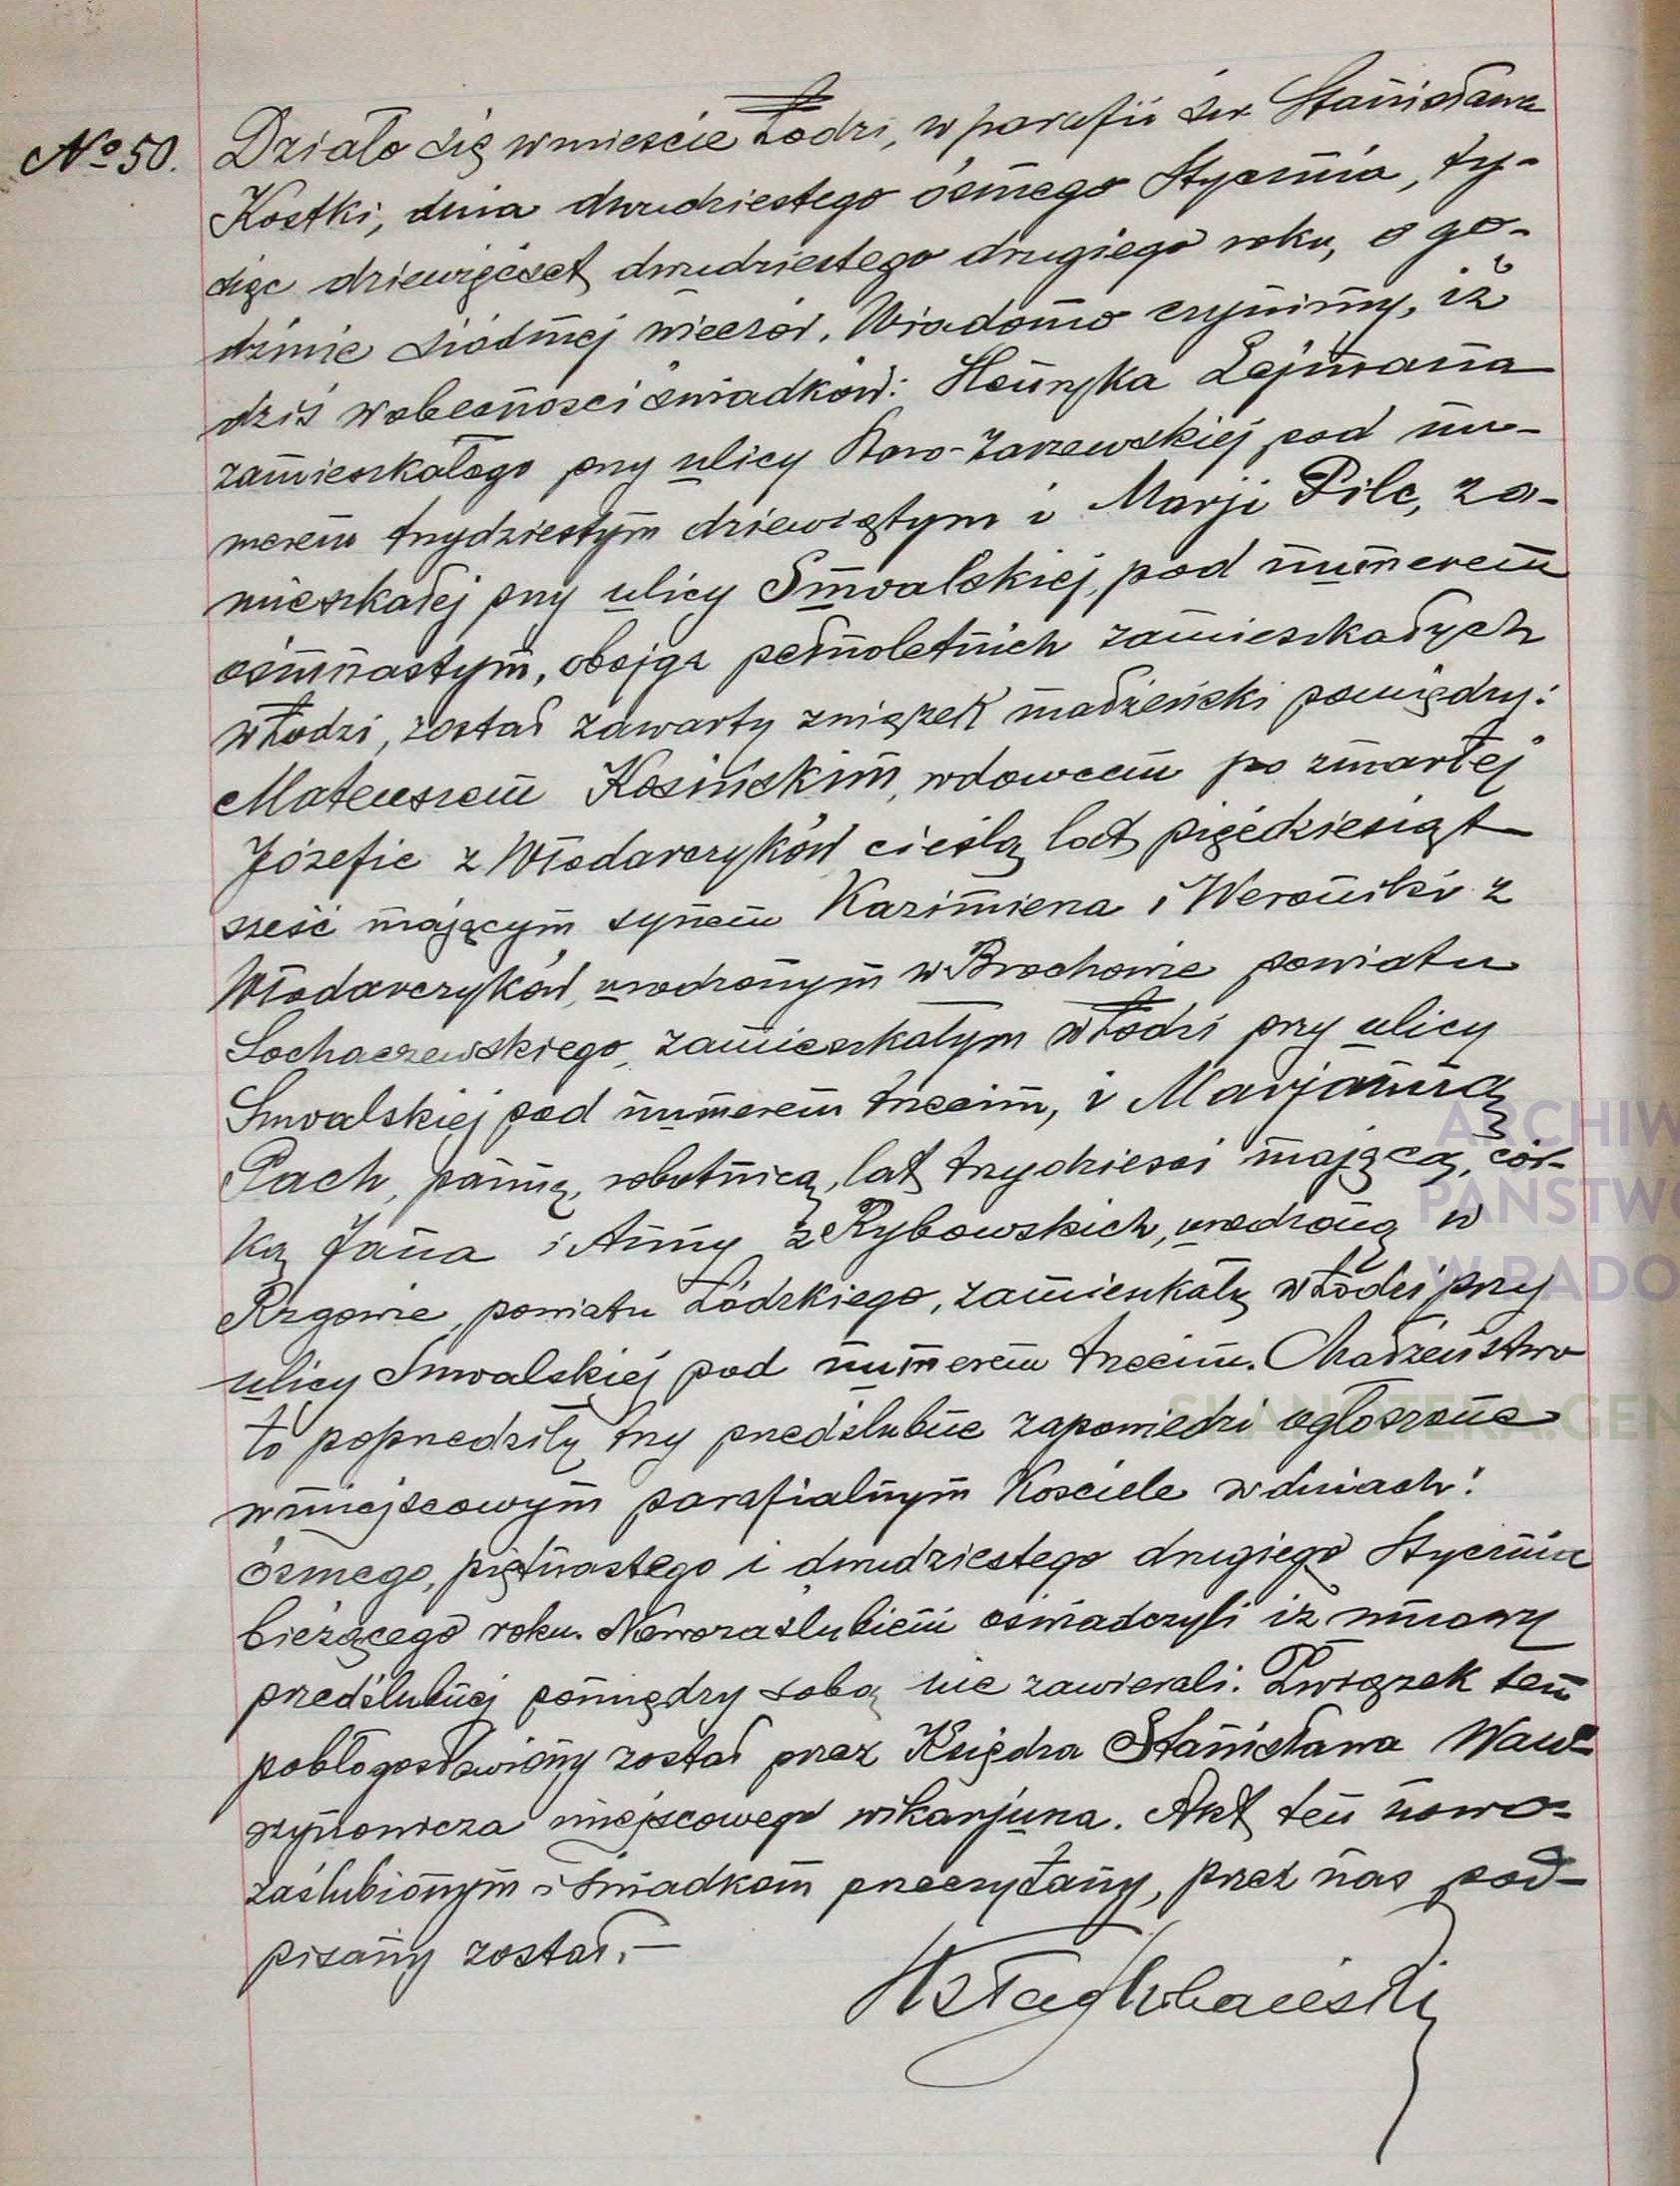 No 50.
Działo się w mieście Łodzi, w parafii św Stanisława
Kostki, dnia dwudziestego ósmego Stycznia, ty-
siąc dziewięćset dwudziestego drugiego roku, o go-
dzinie siódmej wieczór. Wiadomo czynimy, iż
dziś w obecności świadków: Henryka Lejmana
zamieszkałego przy ulicy Nowo-Zarzewskiej pod nu-
merem trzydziestym dziewiątym i Marji Pilc, za-
mieszkałej przy ulicy Suwalskiej, pod numerem
ośmnastym, obojga pełnoletnich zamieszkałych
w Łodzi, został zawarty związek małżeński pomiędzy:
Mateuszem Kosińskim, wdowcem po zmarłej
Józefie z Włodarczyków cieślą lat pięćdziesiąt
sześć mającym synem Kazimierza i Weroniki z
Włodarczyków, urodzonym w Brochowie powiatu
Sochaczewskiego, zamieszkałym w Łodzi przy ulicy
Suwalskiej pod numerem trzecim, i Marjanną
Pach, panną, robotnicą, lat trzydzieści mającą, cór-
ką Jana i Anny z Rybowskich, urodzoną w
Rzgowie, powiatu Łódzkiego, zamieszkałą w Łodzi przy
ulicy Suwalskiej pod numerem trzecim. Małżeństwo
to poprzedziły trzy przedślubne zapowiedzi ogłoszone
w miejscowym parafialnym Kościele w dniach:
ósmego, piętnastego i dwudziestego drugiego Stycznia
bieżącego roku. Nowozaślubieni oświadczyli iż umowy
przedślubnej pomiędzy sobą nie zawierali. Związek ten
pobłogosławiony został przez Księdza Stanisława Waw-
rzynowicza miejscowego wikarjusza. Akt ten nowo-
zaślubionym i świadkom przeczytany, przez nas pod-
pisany został.—
ARCHIW
PAŃSTWO
W RADO
SKANOTEKA.GEN